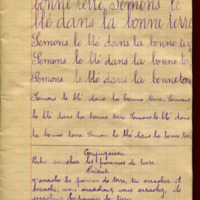 bonne terre. Semons le
blé dans la bonne terre
Semons le blé dans la bonne ter
Semons le blé dans la bonne ter
Semons le blé dans la bonne terre
Semons le blé dans la bonne terre. Semons
le blé dans la bonne terre Semons le blé dans
la bonne terre Semons le blé dans la bonne terre
Conjugaison
arracher les pommes de terre.
Présent
J'arrache les pommes de terre, tu arraches, il
arrache, nous arrachons, vous arrachez, ils
arrachent les pommes de terre.